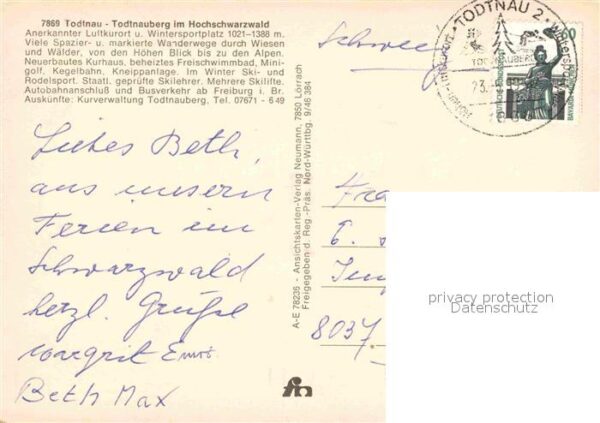 7869 Todtnau - Todtnauberg im Hochschwarzwald
Anerkannter Luftkurort u. Wintersportplatz 1021–1388 m.
Viele Spazier- u. markierte Wanderwege durch Wiesen
und Wälder, von den Höhen Blick bis zu den Alpen.
Neuerbautes Kurhaus, beheiztes Freischwimmbad, Mini-
golf, Kegelbahn, Kneippanlage. Im Winter Ski- und
Rodelsport. Staatl. geprüfte Skilehrer. Mehrere Skilifte.
Autobahnanschluß und Busverkehr ab Freiburg i. Br.
Auskünfte: Kurverwaltung Todtnauberg, Tel. 07671 - 649
Liebes Beth,
aus unsern
Ferien im
Schwarzwald
herzl. Grüße
Margrit
Beth Max
A-E 78236 - Ansichtskarten-Verlag Neumann, 7850 Lörrach
Freigegeben d. Reg.-Präs. Nord-Württbg. 9/46 384
Schweiz
TODTNAU 2
TODTNAUBERG
60
6.
8037
privacy protection
Datenschutz